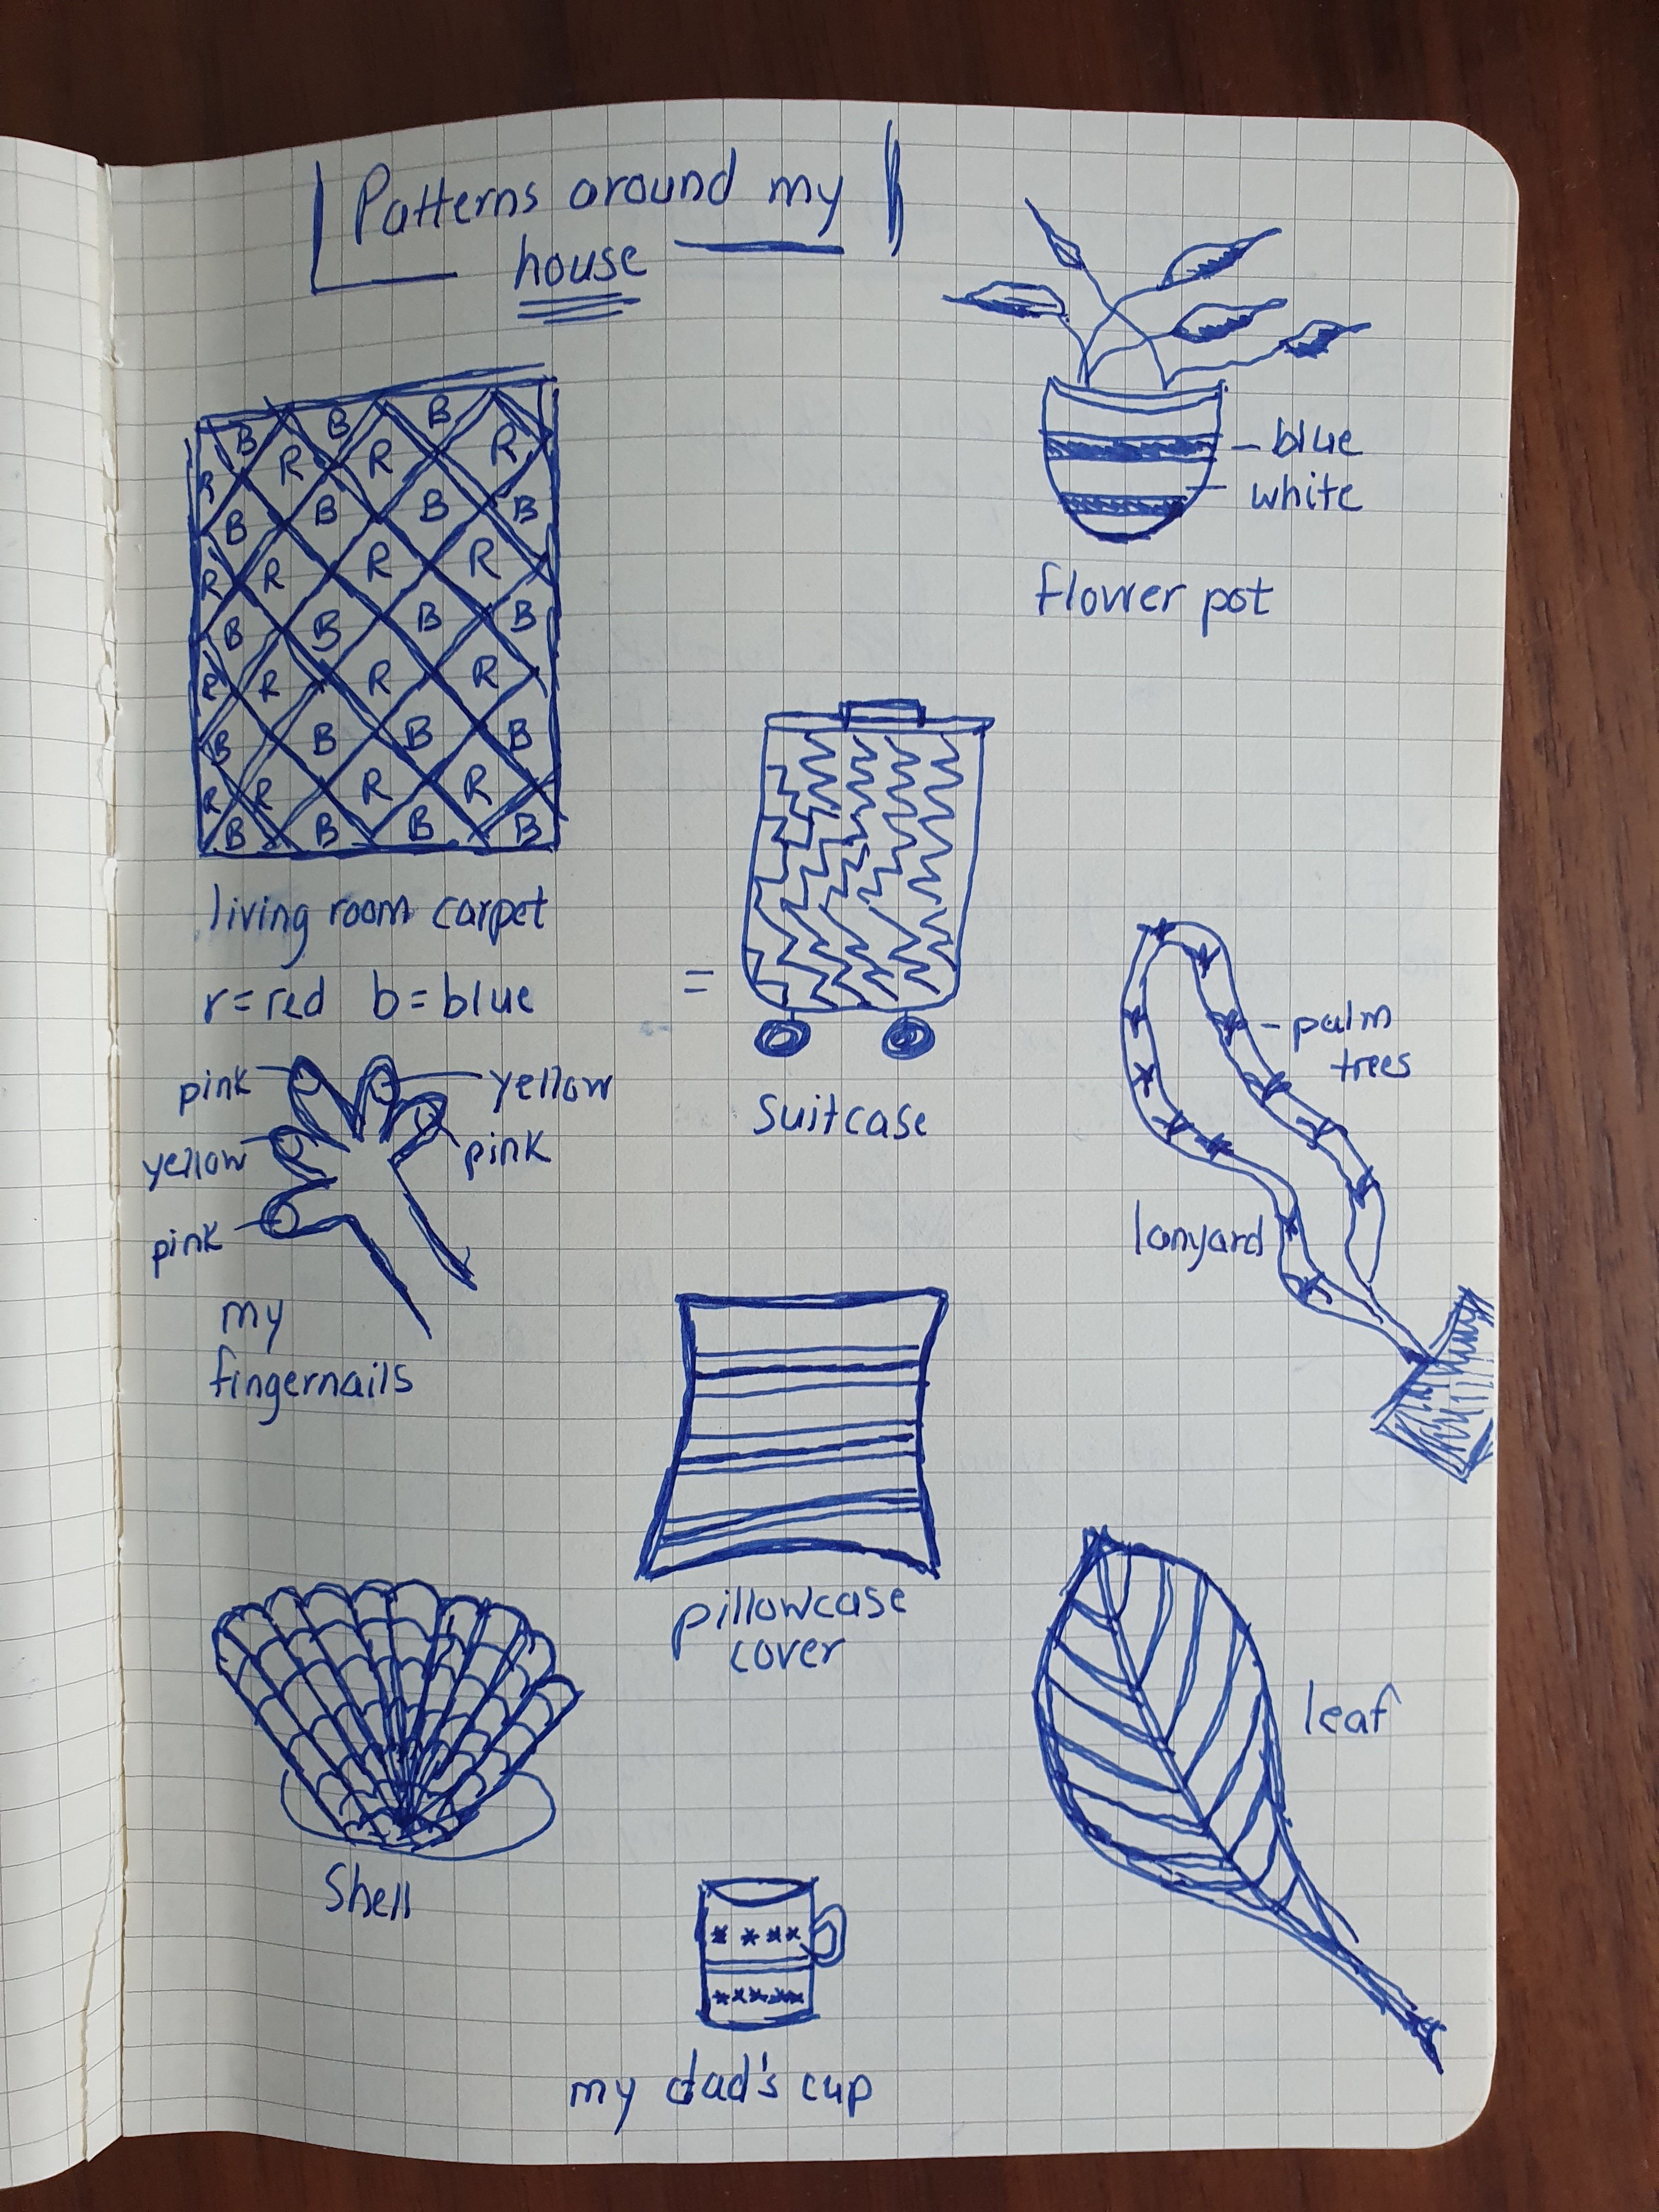 Patterns around my
house
B B B
R R R R
B B B B
R R R R
B B B B
R R R R
B B B B
R R R R
B B B B
living room carpet
r=red b=blue
blue
white
flower pot
=
suitcase
palm
trees
lanyard
pink
yellow
yellow
pink
pink
my
fingernails
pillowcase
cover
Shell
leaf
my dad's cup